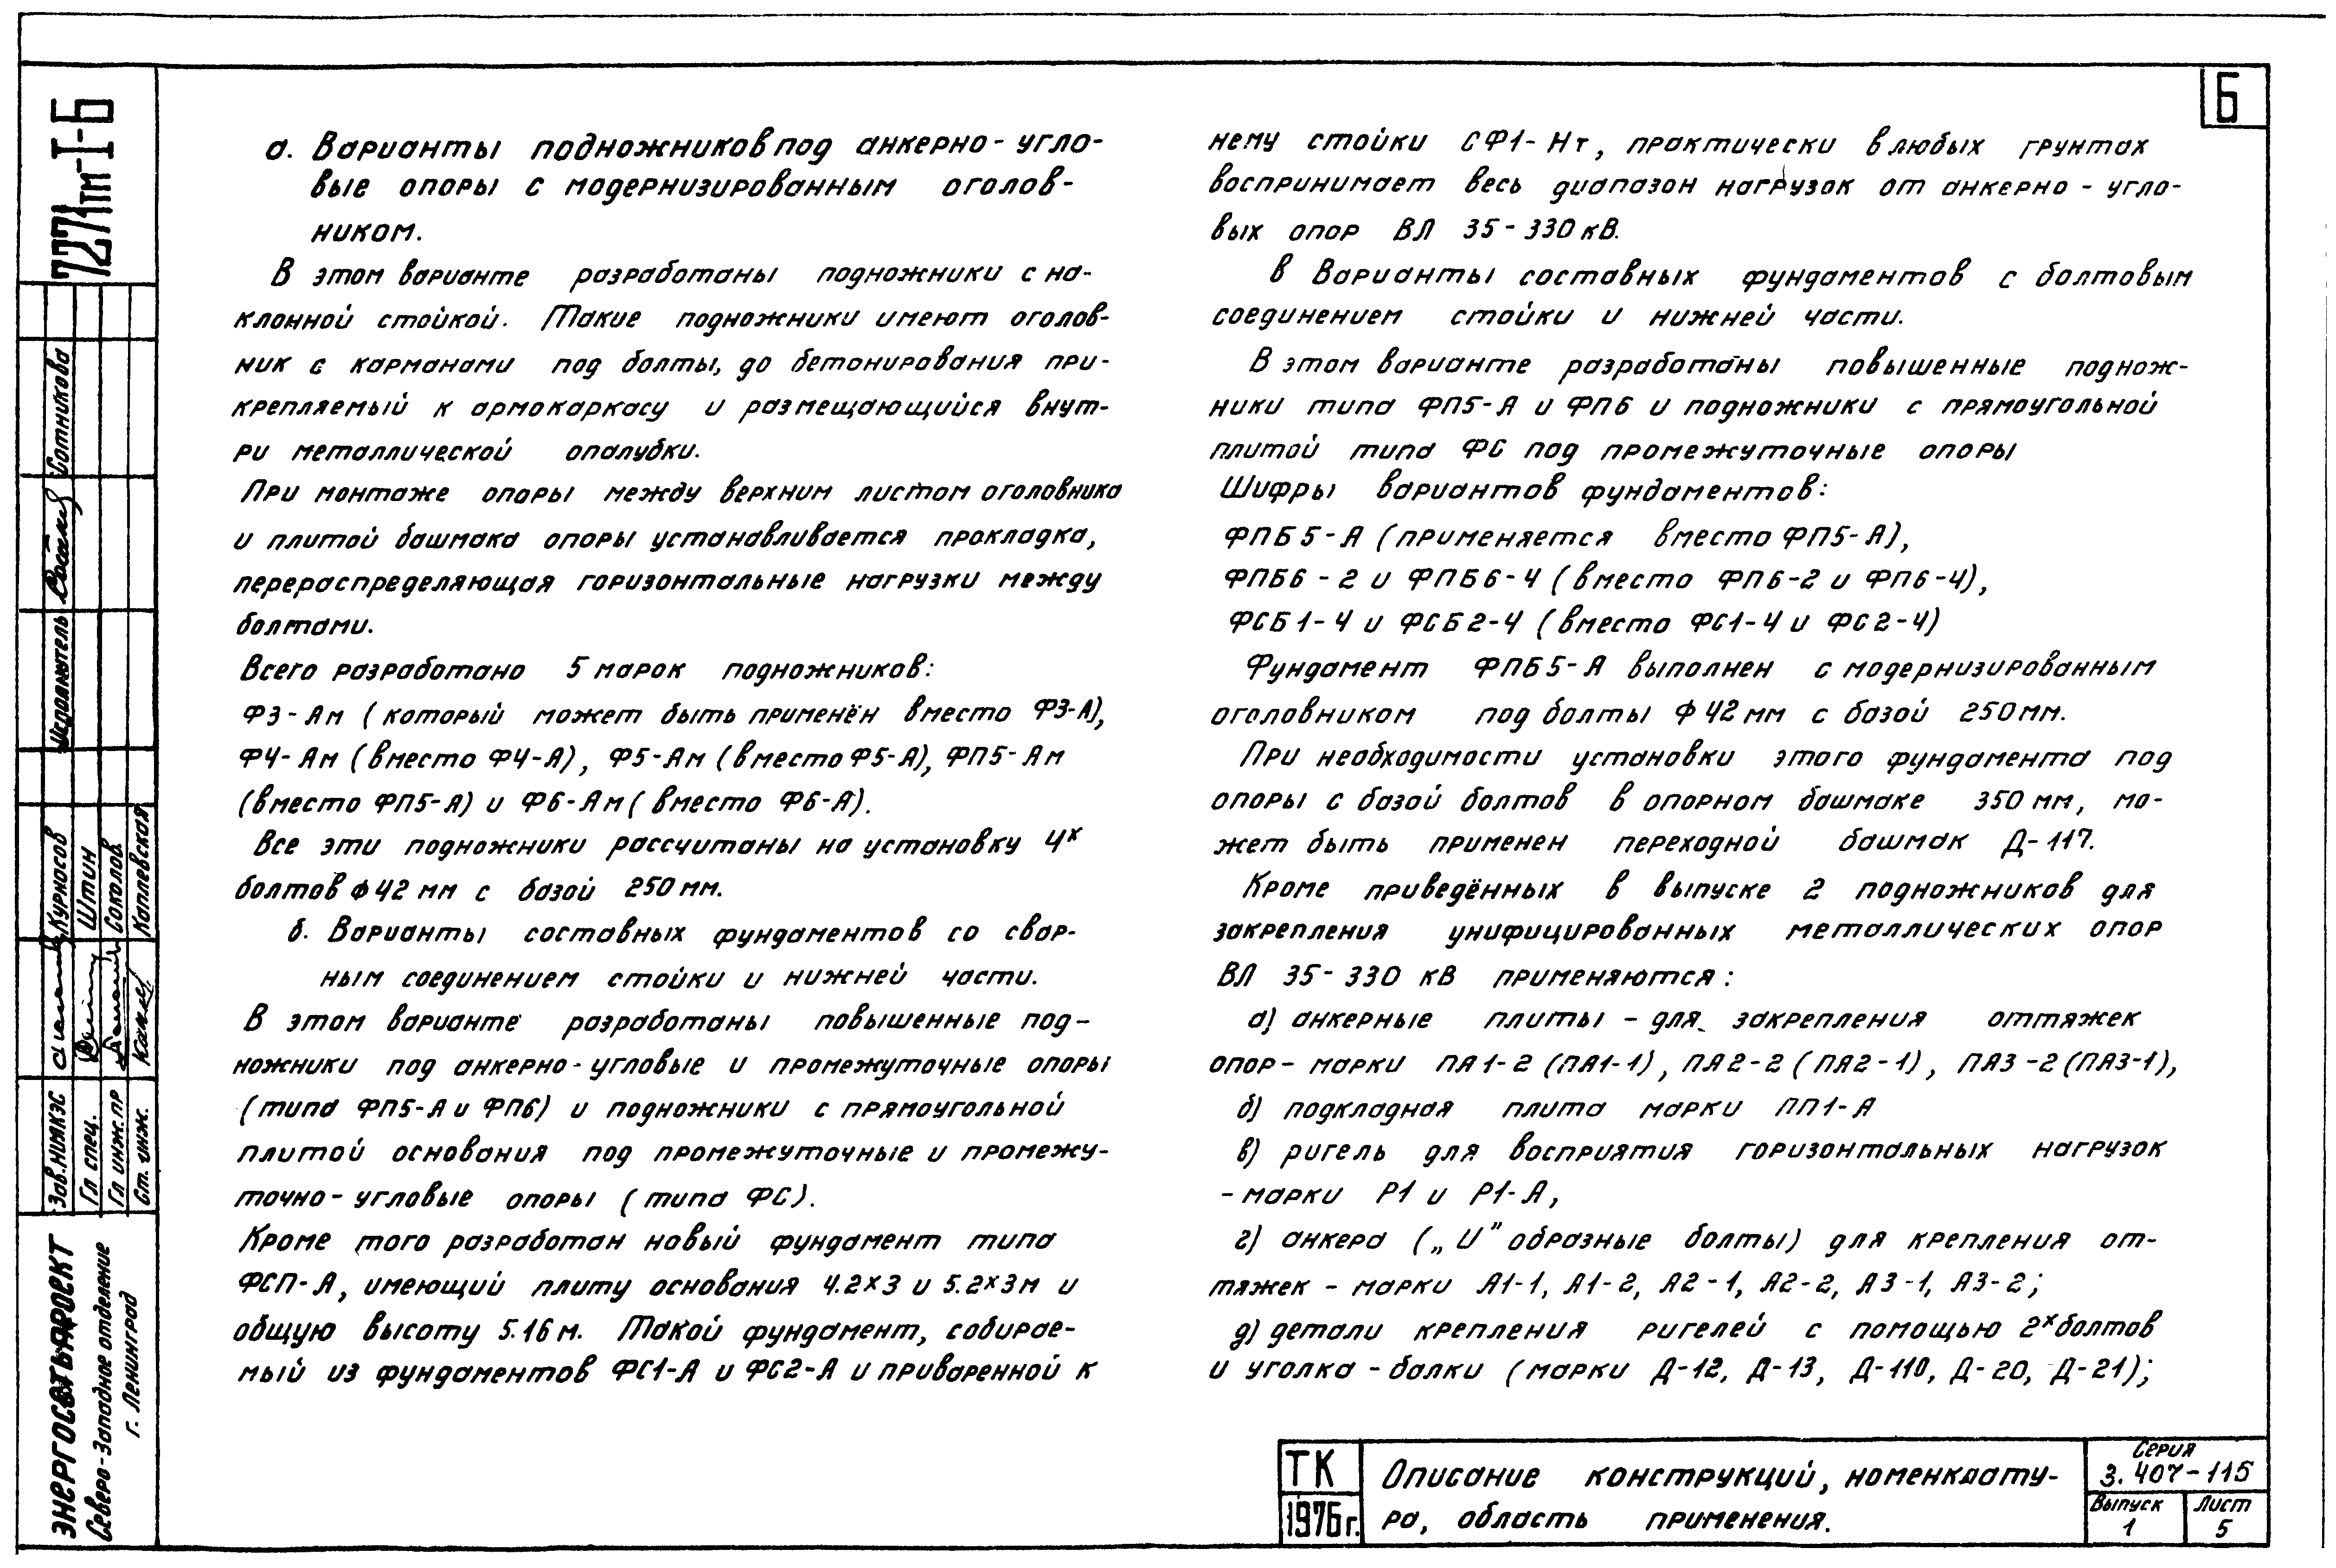 6
а. Варианты подножников под анкерно-угло-
вые опоры с модернизированным оголов-
ником.
В этом варианте разработаны подножники с на-
клонной стойкой. Такие подножники имеют оголов-
ник с карманами под болты, до бетонирования при-
крепляемый к армокаркасу и размещающийся внут-
ри металлической опалубки.
При монтаже опоры между верхним листом оголовника
и плитой башмака опоры устанавливается прокладка,
перераспределяющая горизонтальные нагрузки между
болтами.
Всего разработано 5 марок подножников:
Ф3-Ам (который может быть применён вместо Ф3-А),
Ф4-Ам (вместо Ф4-А), Ф5-Ам (вместо Ф5-А), ФП5-Ам
(вместо ФП5-А) и Ф6-Ам (вместо Ф6-А).
Все эти подножники рассчитаны на установку 4х
болтов ф 42 мм с базой 250 мм.
б. Варианты составных фундаментов со свар-
ным соединением стойки и нижней части.
В этом варианте разработаны повышенные под-
ножники под анкерно-угловые и промежуточные опоры
(типа ФП5-А и ФП6) и подножники с прямоугольной
плитой основания под промежуточные и промежу-
точно-угловые опоры (типа ФС).
Кроме того разработан новый фундамент типа
ФСП-А, имеющий плиту основания 4.2×3 и 5.2×3м и
общую высоту 5.16 м. Такой фундамент, собирае-
мый из фундаментов ФС1-А и ФС2-А и приваренной к
нему стойки СФ1-Нт, практически в любых грунтах
воспринимает весь диапазон нагрузок от анкерно-угло-
вых опор ВЛ 35-330 кВ.
в Варианты составных фундаментов с болтовым
соединением стойки и нижней части.
В этом варианте разработаны повышенные поднож-
ники типа ФП5-А и ФП6 и подножники с прямоугольной
плитой типа ФС под промежуточные опоры
Шифры вариантов фундаментов:
ФПБ5-А (применяется вместо ФП5-А),
ФПБ6-2 и ФПБ6-4 (вместо ФП6-2 и ФП6-4),
ФСБ1-4 и ФСБ2-4 (вместо ФС1-4 и ФС2-4)
Фундамент ФПБ5-А выполнен с модернизированным
оголовником под болты ф 42 мм с базой 250мм.
При необходимости установки этого фундамента под
опоры с базой болтов в опорном башмаке 350 мм, мо-
жет быть применен переходной башмак Д-117.
Кроме приведённых в выпуске 2 подножников для
закрепления унифицированных металлических опор
ВЛ 35-330 кВ применяются:
а) анкерные плиты - для закрепления оттяжек
опор - марки ПА1-2 (ПА1-1), ПА2-2 (ПА2-1), ПА3-2 (ПА3-1),
б) подкладная плита марки ПП1-А
в) ригель для восприятия горизонтальных нагрузок
- марки Р1 и Р1-А,
г) анкера („U" образные болты) для крепления от-
тяжек - марки А1-1, А1-2, А2-1, А2-2, А3-1, А3-2;
д) детали крепления ригелей с помощью 2х болтов
и уголка-балки (марки Д-12, Д-13, Д-110, Д-20, Д-21);
ТК
1976 г.
Описание конструкций, номенклату-
ра, область применения.
Серия
3.407-115
Выпуск
1
Лист
5
7271тм-I-Б
Исполнитель Сотникова
Зав.НИЛКЭС Курносов
Гл спец. Штин
Гл инж. пр Соколов
Ст. инж. Каплевская
ЭНЕРГОСЕТЬПРОЕКТ
Северо-Западное отделение
г. Ленинград